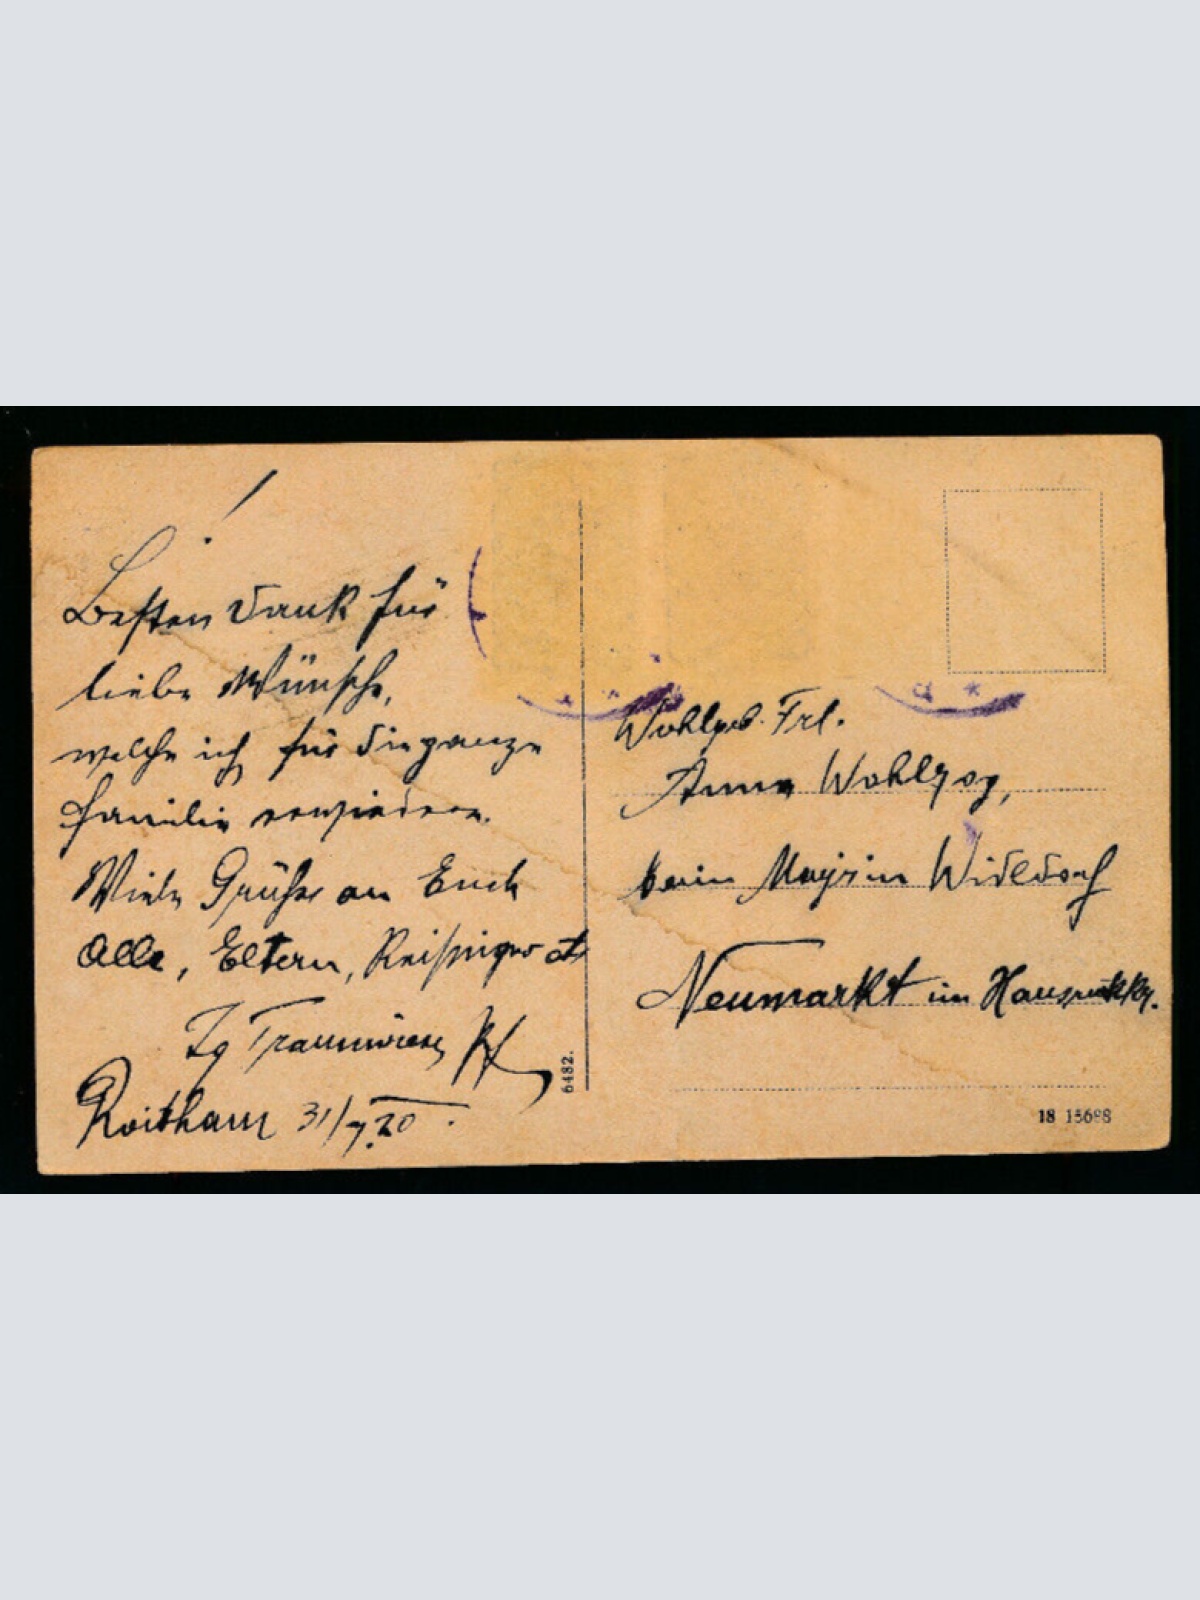 !
Besten Dank für
liebe Wünsche,
welche ich für die ganze
Familie erwiedere.
Viele Grüße an Euch
Alle, Eltern, etc
Ig Traunwieser Pf
Roitham 31/7.20.
6482.
Wohlgeb. Frl.
Anna Wohlzog,
beim Mayr in Wideldorf
Neumarkt im Hausruckkr.
18 15688